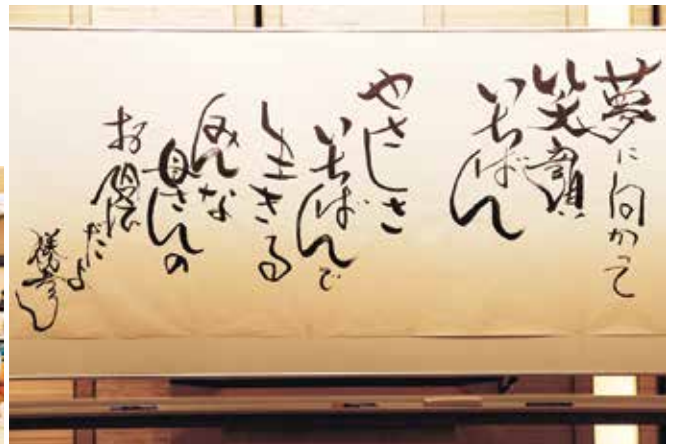 夢に向かって
笑顔
いちばん
やさしさ
いちばんで
生きる
みんな
母さんの
お陰
だよ